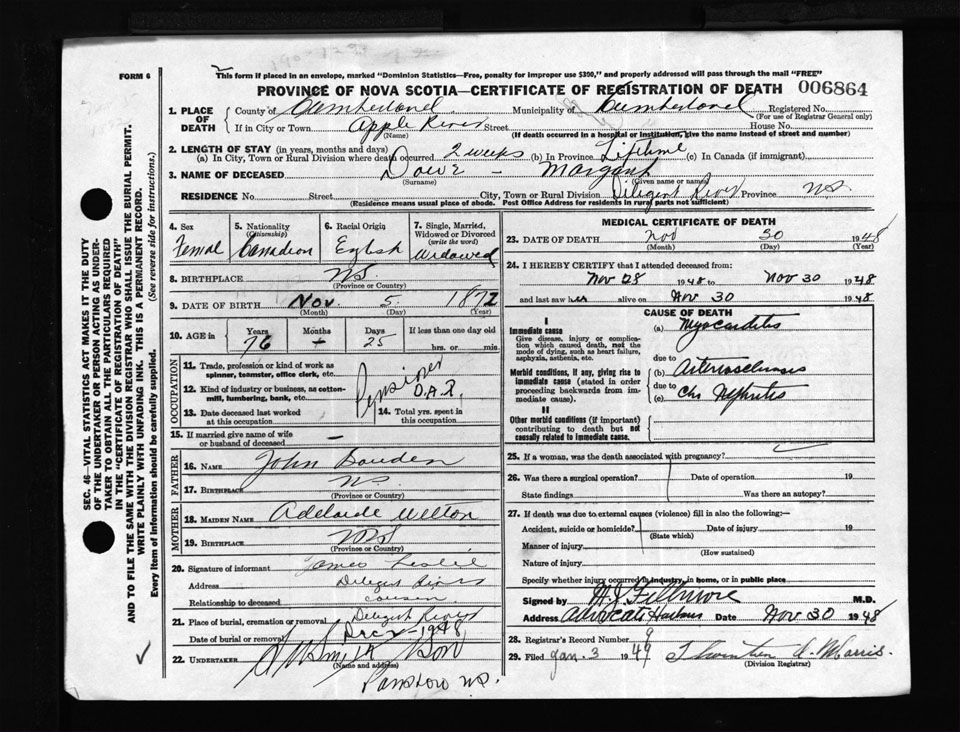 FORM 6
This form if placed in an envelope, marked "Dominion Statistics—Free, penalty for improper use $300," and properly addressed will pass through the mail "FREE"
PROVINCE OF NOVA SCOTIA—CERTIFICATE OF REGISTRATION OF DEATH 006864
1. PLACE OF DEATH
County of Cumberland Municipality of Cumberland Registered No.
(For use of Registrar General only)
If in City or Town Apple River Street House No.
(Name) (If death occurred in a hospital or institution, give the name instead of street and number)
2. LENGTH OF STAY (in years, months and days)
(a) In City, Town or Rural Division where death occurred 2 weeks (b) In Province Lifetime (c) In Canada (if immigrant)
3. NAME OF DECEASED Dowe - Margaret
(Surname) (Given name or names)
RESIDENCE No. Street City, Town or Rural Division Diligent River Province N.S.
(Residence means usual place of abode. Post Office Address for residents in rural parts not sufficient)
4. Sex
Femal
5. Nationality
(Citizenship)
Canadian
6. Racial Origin
English
7. Single, Married,
Widowed or Divorced
(write the word)
Widowed
8. BIRTHPLACE N.S.
(Province or Country)
9. DATE OF BIRTH Nov. 5. 1872
(Month) (Day) (Year)
10. AGE in Years Months Days If less than one day old
76 - 25 hrs. or min.
OCCUPATION
11. Trade, profession or kind of work as
spinner, teamster, office clerk, etc.
12. Kind of industry or business, as cotton-
mill, lumbering, bank, etc.
Pensioner
O.A.P.
13. Date deceased last worked
at this occupation
14. Total yrs. spent in
this occupation
15. If married give name of wife
or husband of deceased -
FATHER
16. NAME John
17. BIRTHPLACE N.S.
(Province or Country)
MOTHER
18. MAIDEN NAME Adelaide Welton
19. BIRTHPLACE N.S.
(Province or Country)
20. Signature of informant James Leslie
Address Diligent River
Relationship to deceased cousin
21. Place of burial, cremation or removal Diligent River
Date of burial or removal Dec 2 - 1948
22. UNDERTAKER Smith Son
(Name and address)
N.S.
MEDICAL CERTIFICATE OF DEATH
23. DATE OF DEATH Nov 30 1948
(Month) (Day) (Year)
24. I HEREBY CERTIFY that I attended deceased from:
Nov 28 1948 to Nov 30 1948
and last saw her alive on Nov 30 1948
CAUSE OF DEATH
I
Immediate cause
Give disease, injury or complica-
tion which caused death, not the
mode of dying, such as heart failure,
asphyxia, asthenia, etc.
(a) Myocarditis
due to
Morbid conditions, if any, giving rise to
immediate cause (stated in order
proceeding backwards from im-
mediate cause).
(b) Arteriosclerosis
due to
(c) Chr Nephritis
II
Other morbid conditions (if important)
contributing to death but not
causally related to immediate cause.
25. If a woman, was the death associated with pregnancy?
26. Was there a surgical operation? Date of operation 19
State findings Was there an autopsy?
27. If death was due to external causes (violence) fill in also the following:-
Accident, suicide or homicide? Date of injury 19
(State which)
Manner of injury
(How sustained)
Nature of injury
Specify whether injury occurred in industry, in home, or in public place
Signed by H.J. Fillmore M.D.
Address Advocate Harbour Date Nov 30 1948
28. Registrar's Record Number 9
29. Filed Jan. 3 1949 Morris.
(Division Registrar)
SEC. 46—VITAL STATISTICS ACT MAKES IT THE DUTY
OF THE UNDERTAKER OR PERSON ACTING AS UNDER-
TAKER TO OBTAIN ALL THE PARTICULARS REQUIRED
IN THE "CERTIFICATE OF REGISTRATION OF DEATH"
AND TO FILE THE SAME WITH THE DIVISION REGISTRAR WHO SHALL ISSUE THE BURIAL PERMIT.
WRITE PLAINLY WITH UNFADING INK. THIS IS A PERMANENT RECORD.
Every item of information should be carefully supplied. (See reverse side for instructions.)